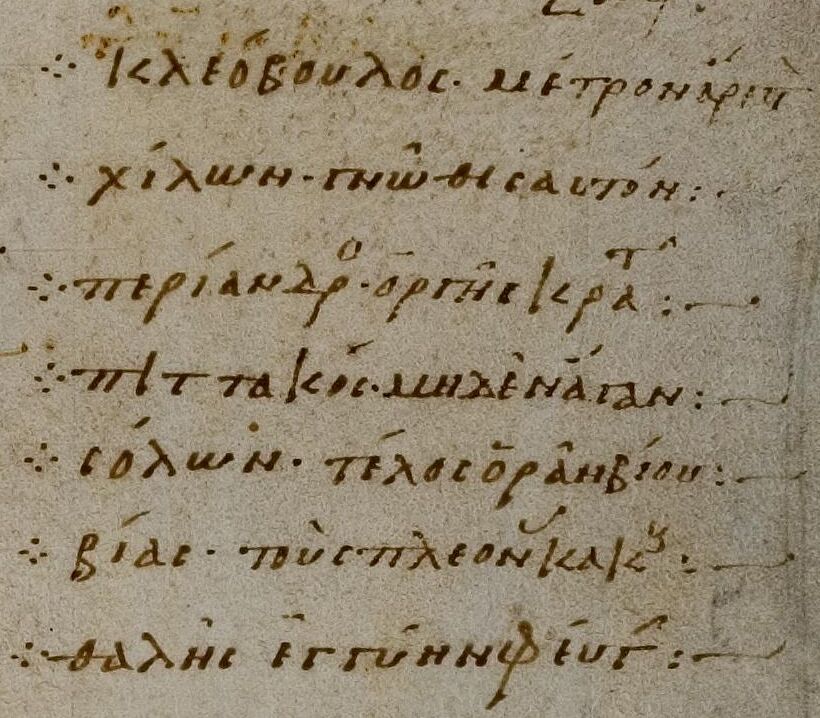 κλεόβουλος· μέτρον ἄριστ
χίλων· γνῶθι σαυτόν:
περίανδρο· ὀργῆς κράτ:
πιττακός· μηδὲν ἄγαν:
σόλων· τέλος ὁρᾶν βίου:
βίας· τοὺς πλέον κακ:
θαλῆς ἐγγύην φεύγ: